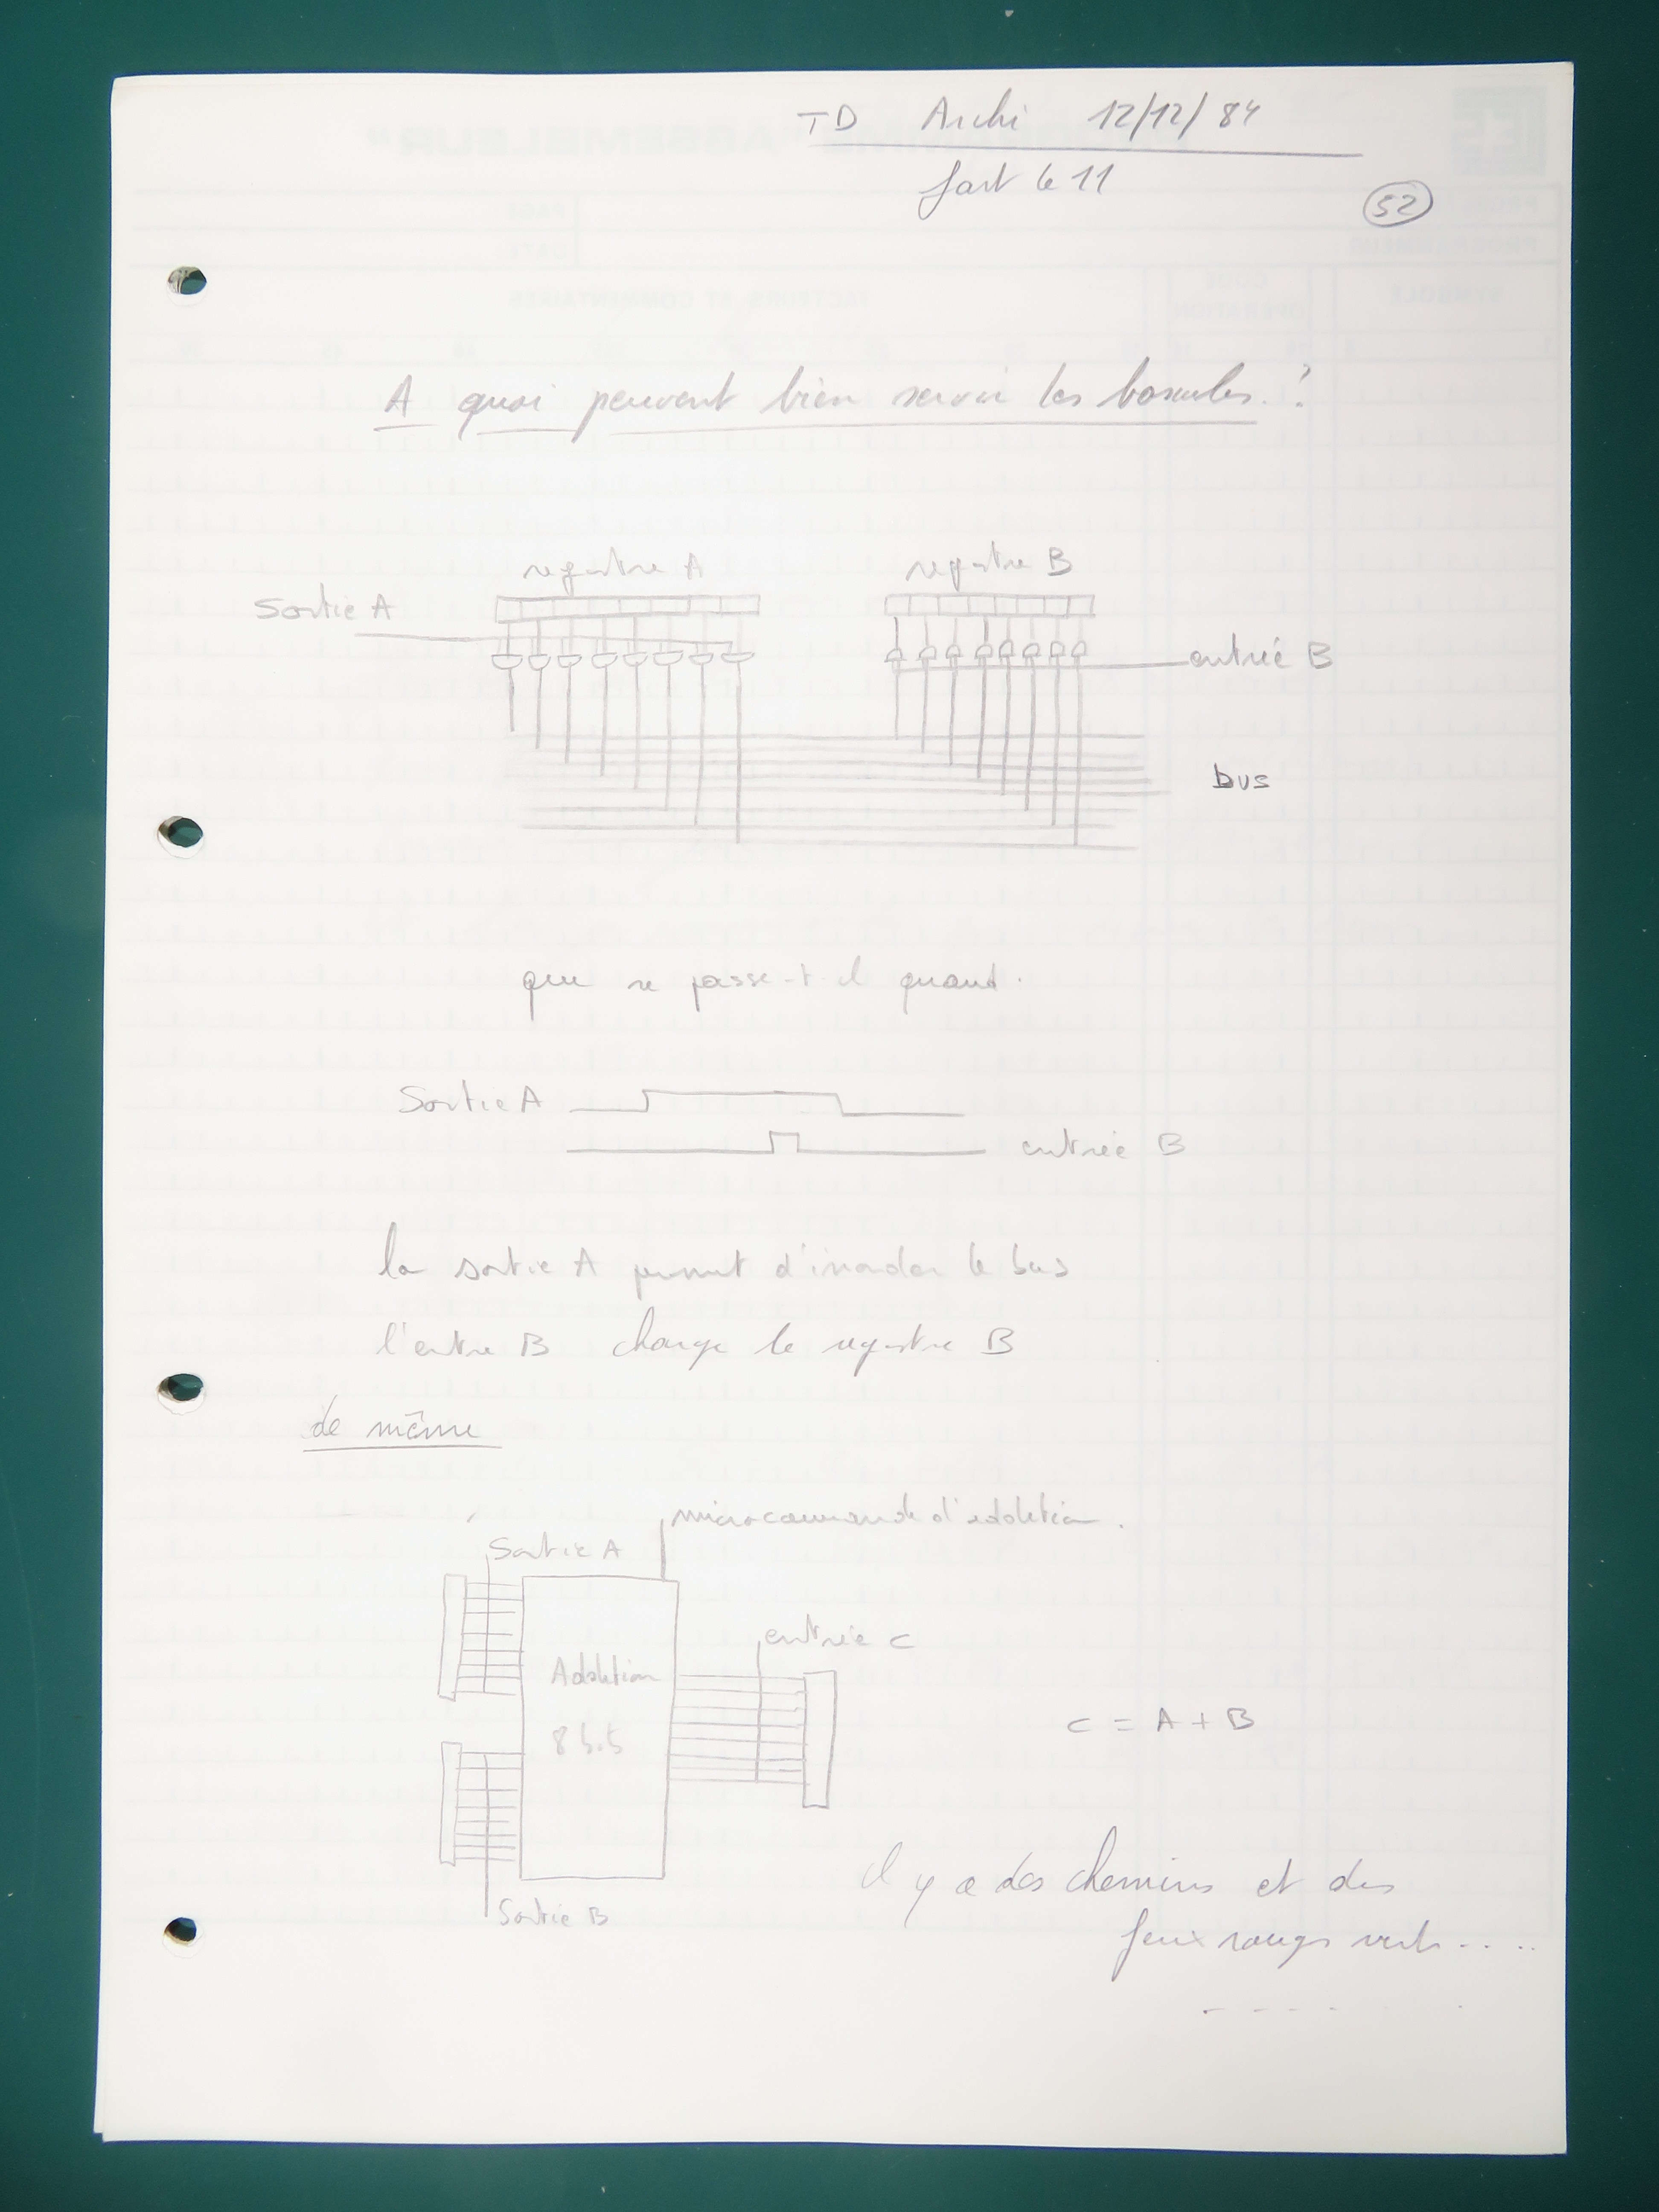 TD Archi 12/12/84
fait le 11
52
A quoi peuvent bien servir les bascules.?
registre A
registre B
Sortie A
entrée B
bus
que se passe-t-il quand.
Sortie A
entrée B
la sortie A permet d'inonder le bus
l'entre B charge le registre B
de même
microcommande d'addition.
Sortie A
entrée C
Addition
8 bits
C = A + B
Sortie B
il y a des chemins et des
feux rouges verts....